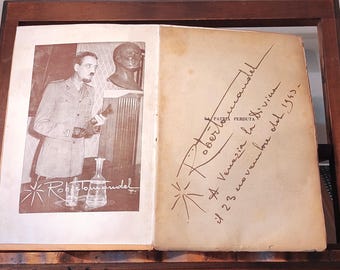 Roberto Mandel
LA PATRIA PERDUTA
Roberto Mandel
A Venezia la Divina
il 23 novembre del 1943-